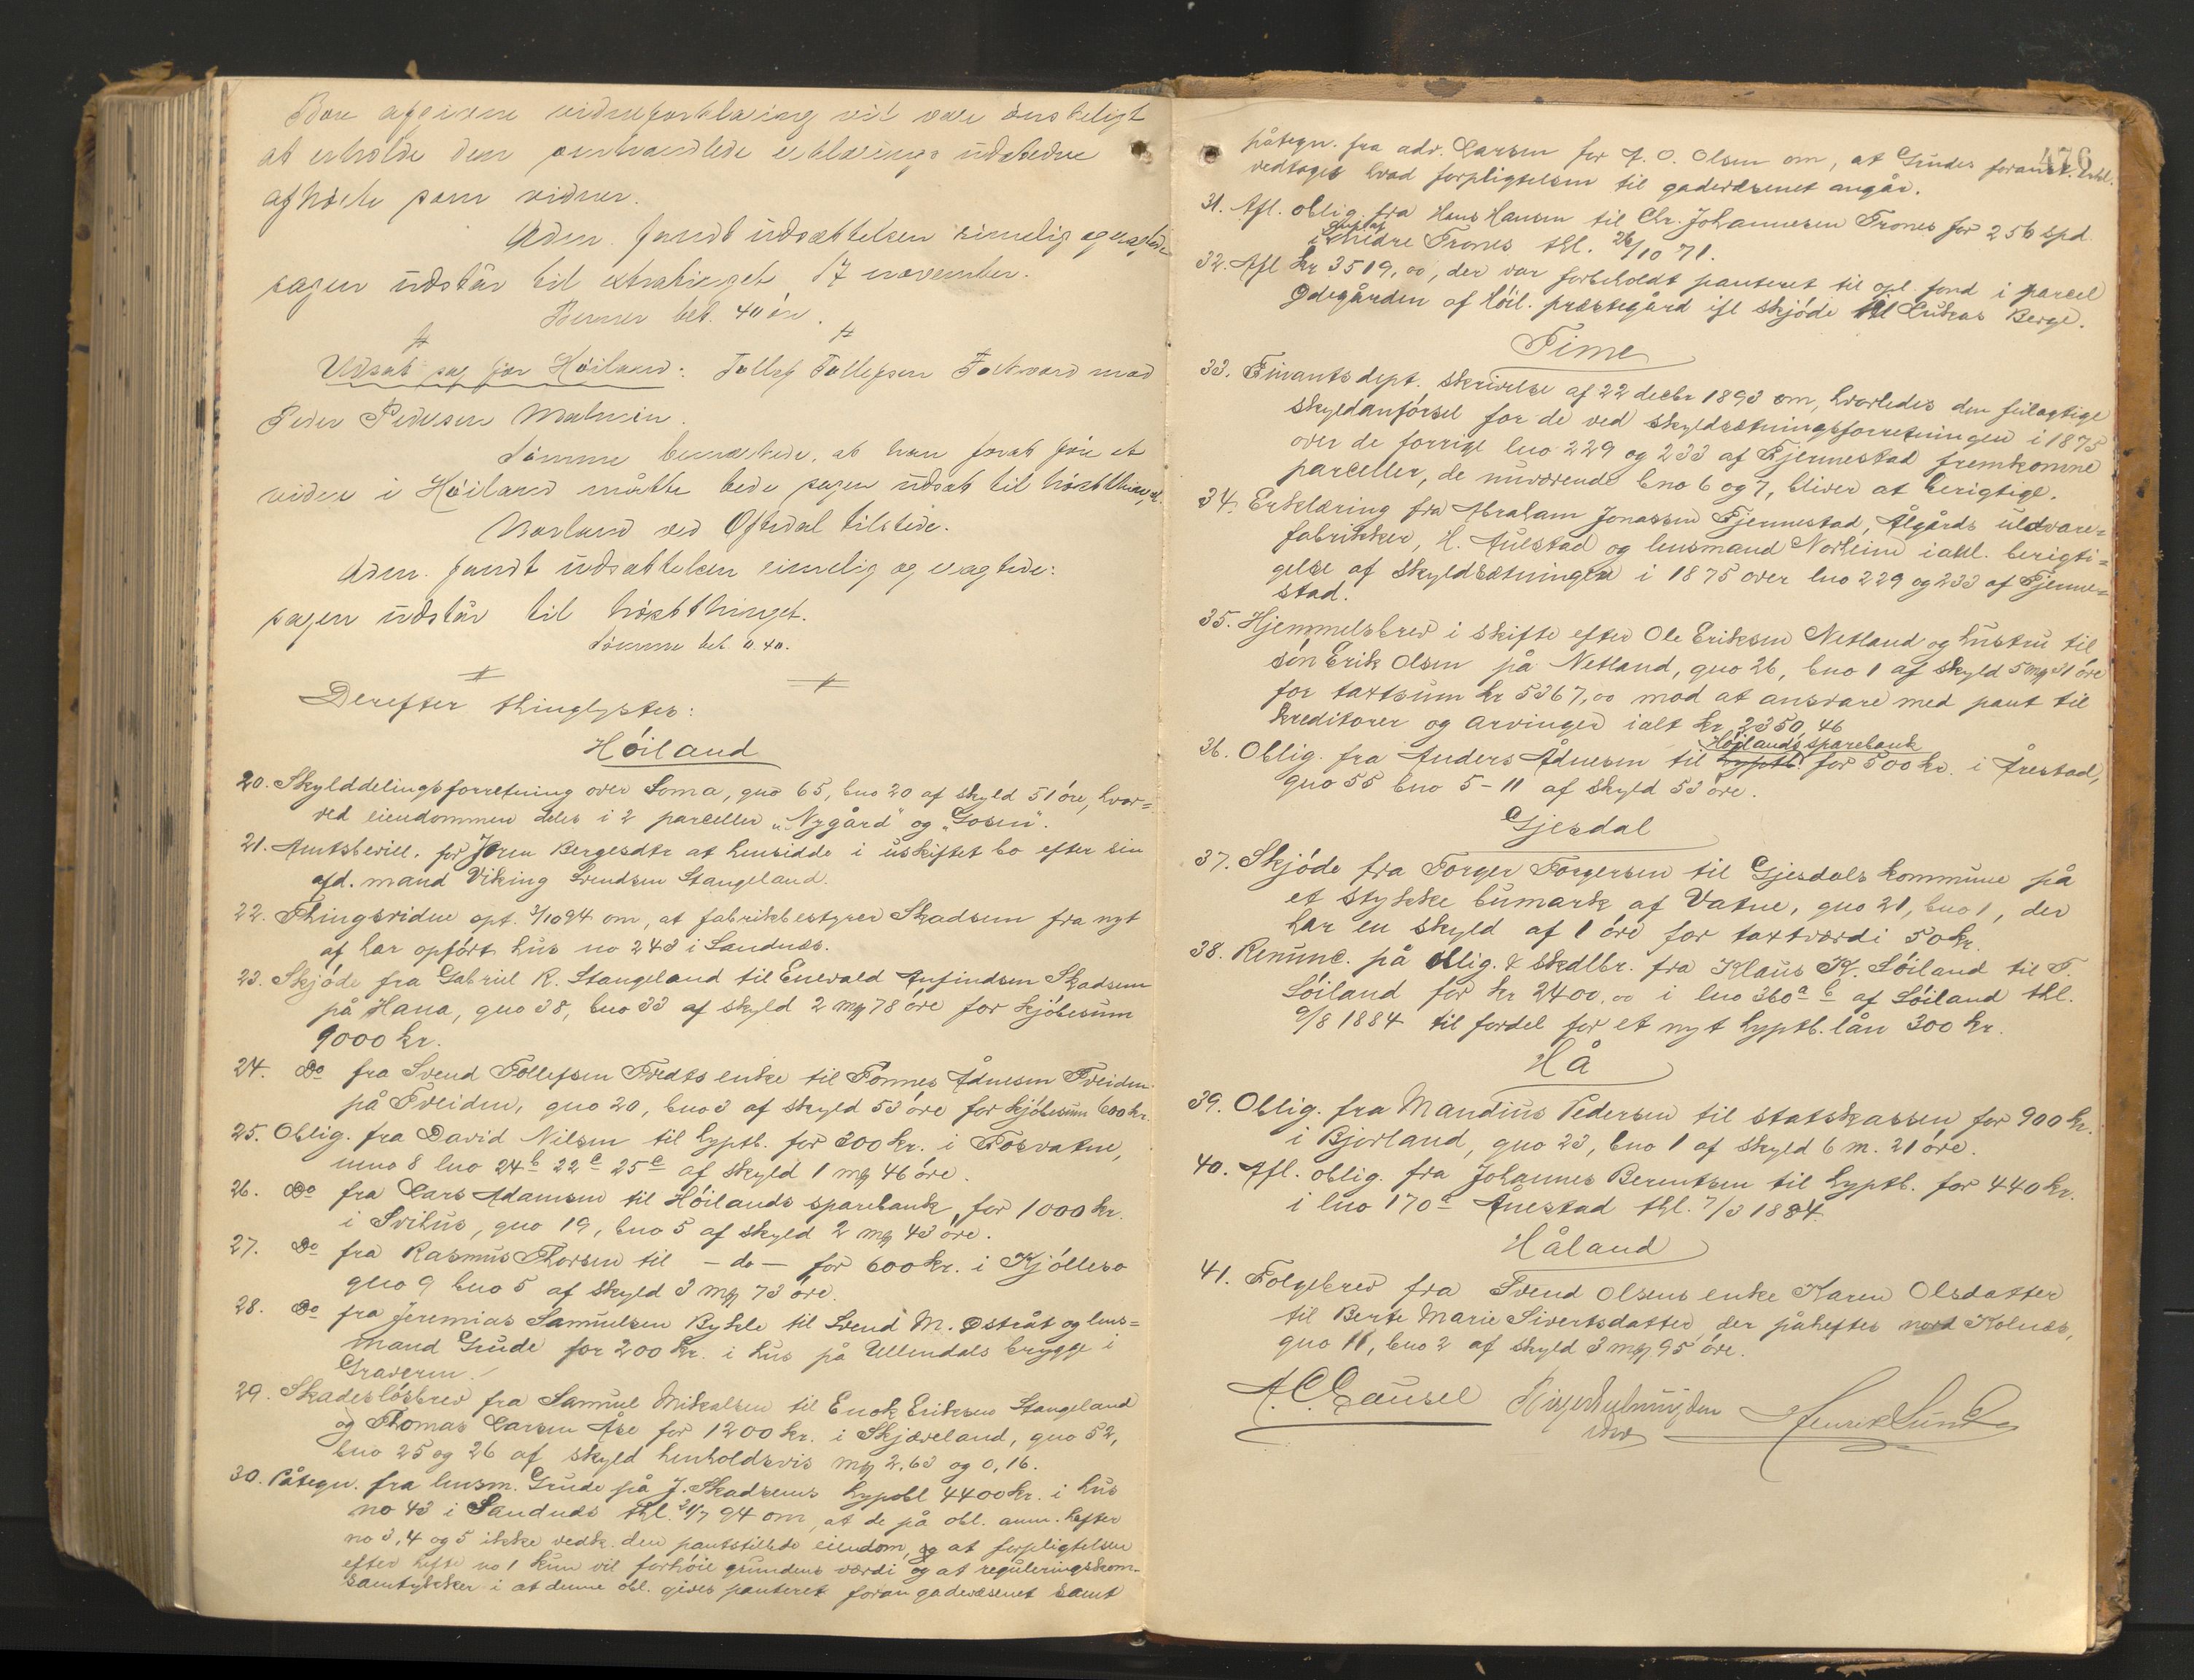 Bon afgivne vidneforklaring vil være ønskeligt
at erholde den omhandlede erklærings udstedere
afhørte som vidner.
Adm. fandt udsættelsen rimelig og vragtede
sagen udstår til extrathinget 17 november.
Berner bet. 40 øre.
Udsat sag fra Høiland: Tollef Tollefsen
Peder Pedersen Malmin.
Sømme bemærkede, at han foruden et
vidne i Høiland måtte bede sagen udsat til høstthinget.
ved Oftedal tilstede.
Adm. fandt udsættelsen rimelig og vragtede:
sagen udstår til høstthinget.
Sømme bet. 0.40.
Derefter thinglystes:
Høiland
20. Skylddelingsforretning over Soma, gno 65, bno 20 af skyld 51 øre, hvor=
ved eiendommen deles i 2 parceller „Nygård" og „Gosen".
21. Amtsbevill. for Joren Bergesdtr at hensidde i uskiftet bo efter sin
afd. mand Viking Svendsen Stangeland.
22. Thingsvidne opt. 3/10 94 om, at fabrikbestyrer Skadsem fra nyt
af har opført hus no 243 i Sandnæs.
23. Skjøde fra Gabriel R. Stangeland til Enevald Anfindsen Skadsem
på Hana, gno 38, bno 33 af skyld 2 mk 78 øre for kjøbesum
9000 kr.
24. Do fra Svend Tollefsen Tvedts enke til Tønnes Ådnesen Tveiden
på Tveiden, gno 20, bno 3 af skyld 53 øre for kjøbesum 600 kr.
25. Oblig. fra David Nilsen til hyptb. for 300 kr. i Fosvatne,
mno 8 lno 24b 22c 25c af skyld 1 mk 46 øre.
26. Do fra Lars Adamsen til Høilands sparebank for 1000 kr.
i Svihus, gno 19, bno 5 af skyld 2 mk 43 øre.
27. Do fra Rasmus Thorsen til – do – for 600 kr. i Kjøllesø
gno 9 bno 5 af skyld 3 mk 73 øre.
28. Do fra Jeremias Samuelsen Bykle til Svend M. Østråt og lens=
mand Grude for 200 kr. i hus på Ullendals brygge i
Graveren.
29. Skadesløsbrev fra Samuel Mikalsen til Enok Eriksen Stangeland
og Thomas Larsen Åse for 1200 kr. i Skjæveland, gno 52,
bno 25 og 26 af skyld henholdsvis mk 2,63 og 0,16.
30. Påtegn. fra lensm. Grude på J. Skadsems hypobl 4400 kr. i hus
no 43 i Sandnæs thl. 21/7 94 om, at de på obl. anm. hefter
no 3, 4 og 5 ikke vedk. den pantstillede eiendom, og at forpligtelsen
efter hefte no 1 kun vil forhøie grundens værdi og at reguleringskom.
samtykker i at denne obl. gives panteret foran gadevæsenet samt
476
påtegn. fra adv. Larsen for A. O. Olsen om, at Grudes foranst. erkl.
vedtages hvad forpligtelsen til gadevæsenet angår.
31. Afl. oblig. fra Hans Hansen til Chr. Johannesen Trones for 256 spd.
i nedre Trones thl. 26/10 71.
32. Afl kr 3519,00, der var forbeholdt panteret til opl. fond i parcel
Ødegården af Høil. præstegård ifl skjøde til Lukas Berge.
Time
33. Finantsdept. skrivelse af 22 decbr 1893 om, hvorledes den feilagtige
skyldanførsel for de ved skyldsætningsforretningen i 1875
over de forrige lno 229 og 233 af Fjermestad fremkomne
parceller, de nuværende bno 6 og 7, bliver at berigtige.
34. Erklæring fra Abraham Jonassen Fjermestad, Ålgårds uldvare=
fabrikker, H. Auestad og lensmand Norheim i anl. berigti=
gelse af skyldsætningen i 1875 over lno 229 og 233 af Fjerme=
stad.
35. Hjemmelsbrev i skifte efter Ole Eriksen Netland og hustru til
søn Erik Olsen på Netland, gno 26, bno 1 af skyld 5 mk 31 øre
for taxtsum kr 5367,00 mod at ansvare med pant til
kreditorer og arvinger ialt kr 2350,46
36. Oblig. fra Anders Ådnesen til hyptb. Høilands sparebank for 500 kr. i Årestad,
gno 55 bno 5 – 11 af skyld 53 øre.
Gjesdal
37. Skjøde fra Torger Torgersen til Gjesdals kommune på
et stykke bumark af Vatne, gno 21, bno 1, der
har en skyld af 1 øre for taxtværdi 50 kr.
38. Renunc. på oblig. & skdlbr. fra Klaus K. Søiland til T.
Søiland for kr 2400,00 i lno 360a b af Søiland thl.
9/8 1884 til fordel for et nyt hyptb. lån 300 kr.
Hå
39. Oblig. fra Mandius Pedersen til statskassen for 900 kr.
i Bjorland, gno 23, bno 1 af skyld 6 m. 21 øre.
40. Afl. oblig. fra Johannes Berentsen til hyptb. for 440 kr.
i lno 170a Auestad thl. 7/3 1884.
Håland
41. Følgebrev fra Svend Olsens enke Karen Olsdatter
til Berte Marie Sivertsdatter, der påheftes nord Kolnes,
gno 11, bno 2 af skyld 3 mk 95 øre.
A. C. Gausel Henrik Lund